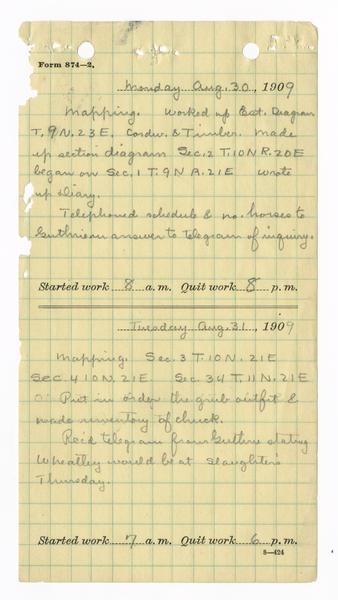 Form 874—2.
Monday Aug. 30, 1909
Mapping. Worked up Est. Diagram
T. 9 N. 23 E. Cordw. & Timber. Made
up section diagram Sec. 2 T. 10 N R. 20 E
began on Sec. 1 T. 9 N R. 21 E wrote
up diary.
Telephoned schedule & no. horses to
Guthrie in answer to telegram of inquiry.
Started work 8 a. m. Quit work 8 p. m.
Tuesday Aug. 31, 1909
Mapping. Sec. 3 T. 10 N. 21 E
Sec. 4 10 N. 21 E Sec. 34 T. 11 N. 21 E
Put in order the grub outfit &
made inventory of chuck.
Rec'd telegram from Guthrie stating
Wheatley would be at Slaughter's
Thursday.
Started work 7 a. m. Quit work 6 p. m.
8—424